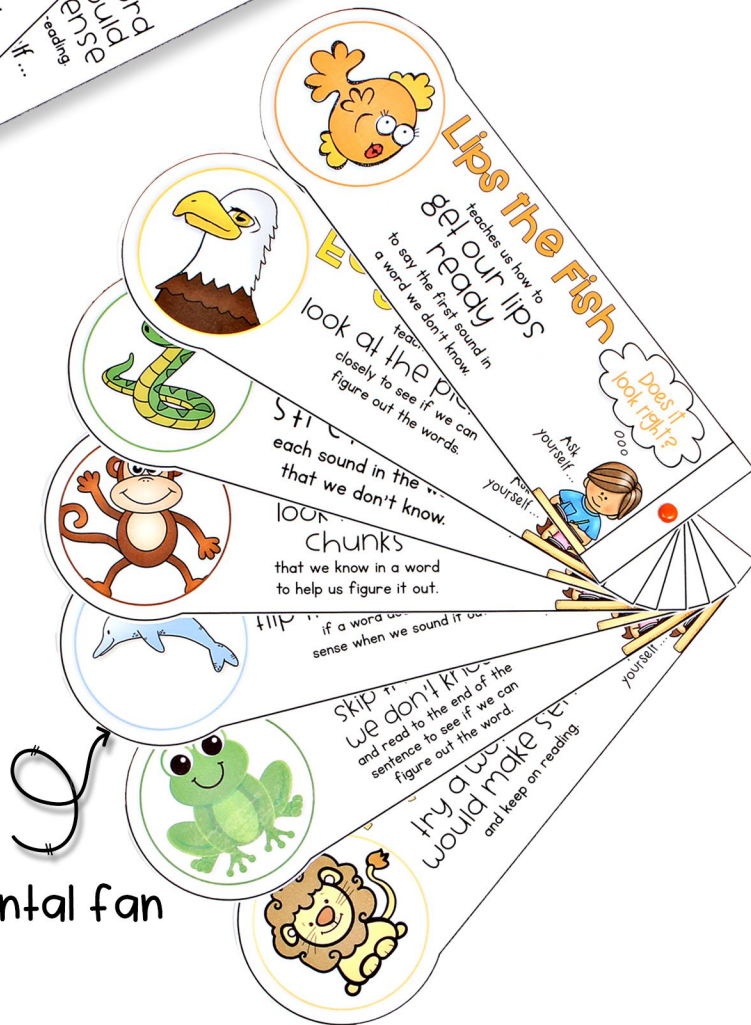 ould
ense
eading.
Lips the Fish
teaches us how to
get our lips
ready
to say the first sound in
a word we don't know.
Does it
look right?
Ask
yourself...
look at the
closely to see if we can
figure out the words.
yourself...
each sound in the
that we don't know.
chunks
that we know in a word
to help us figure it out.
if a word
sense when we sound it
skip
we don't
and read to the end of the
sentence to see if we can
figure out the word.
yourself...
try a
would make
and keep on reading.
fan